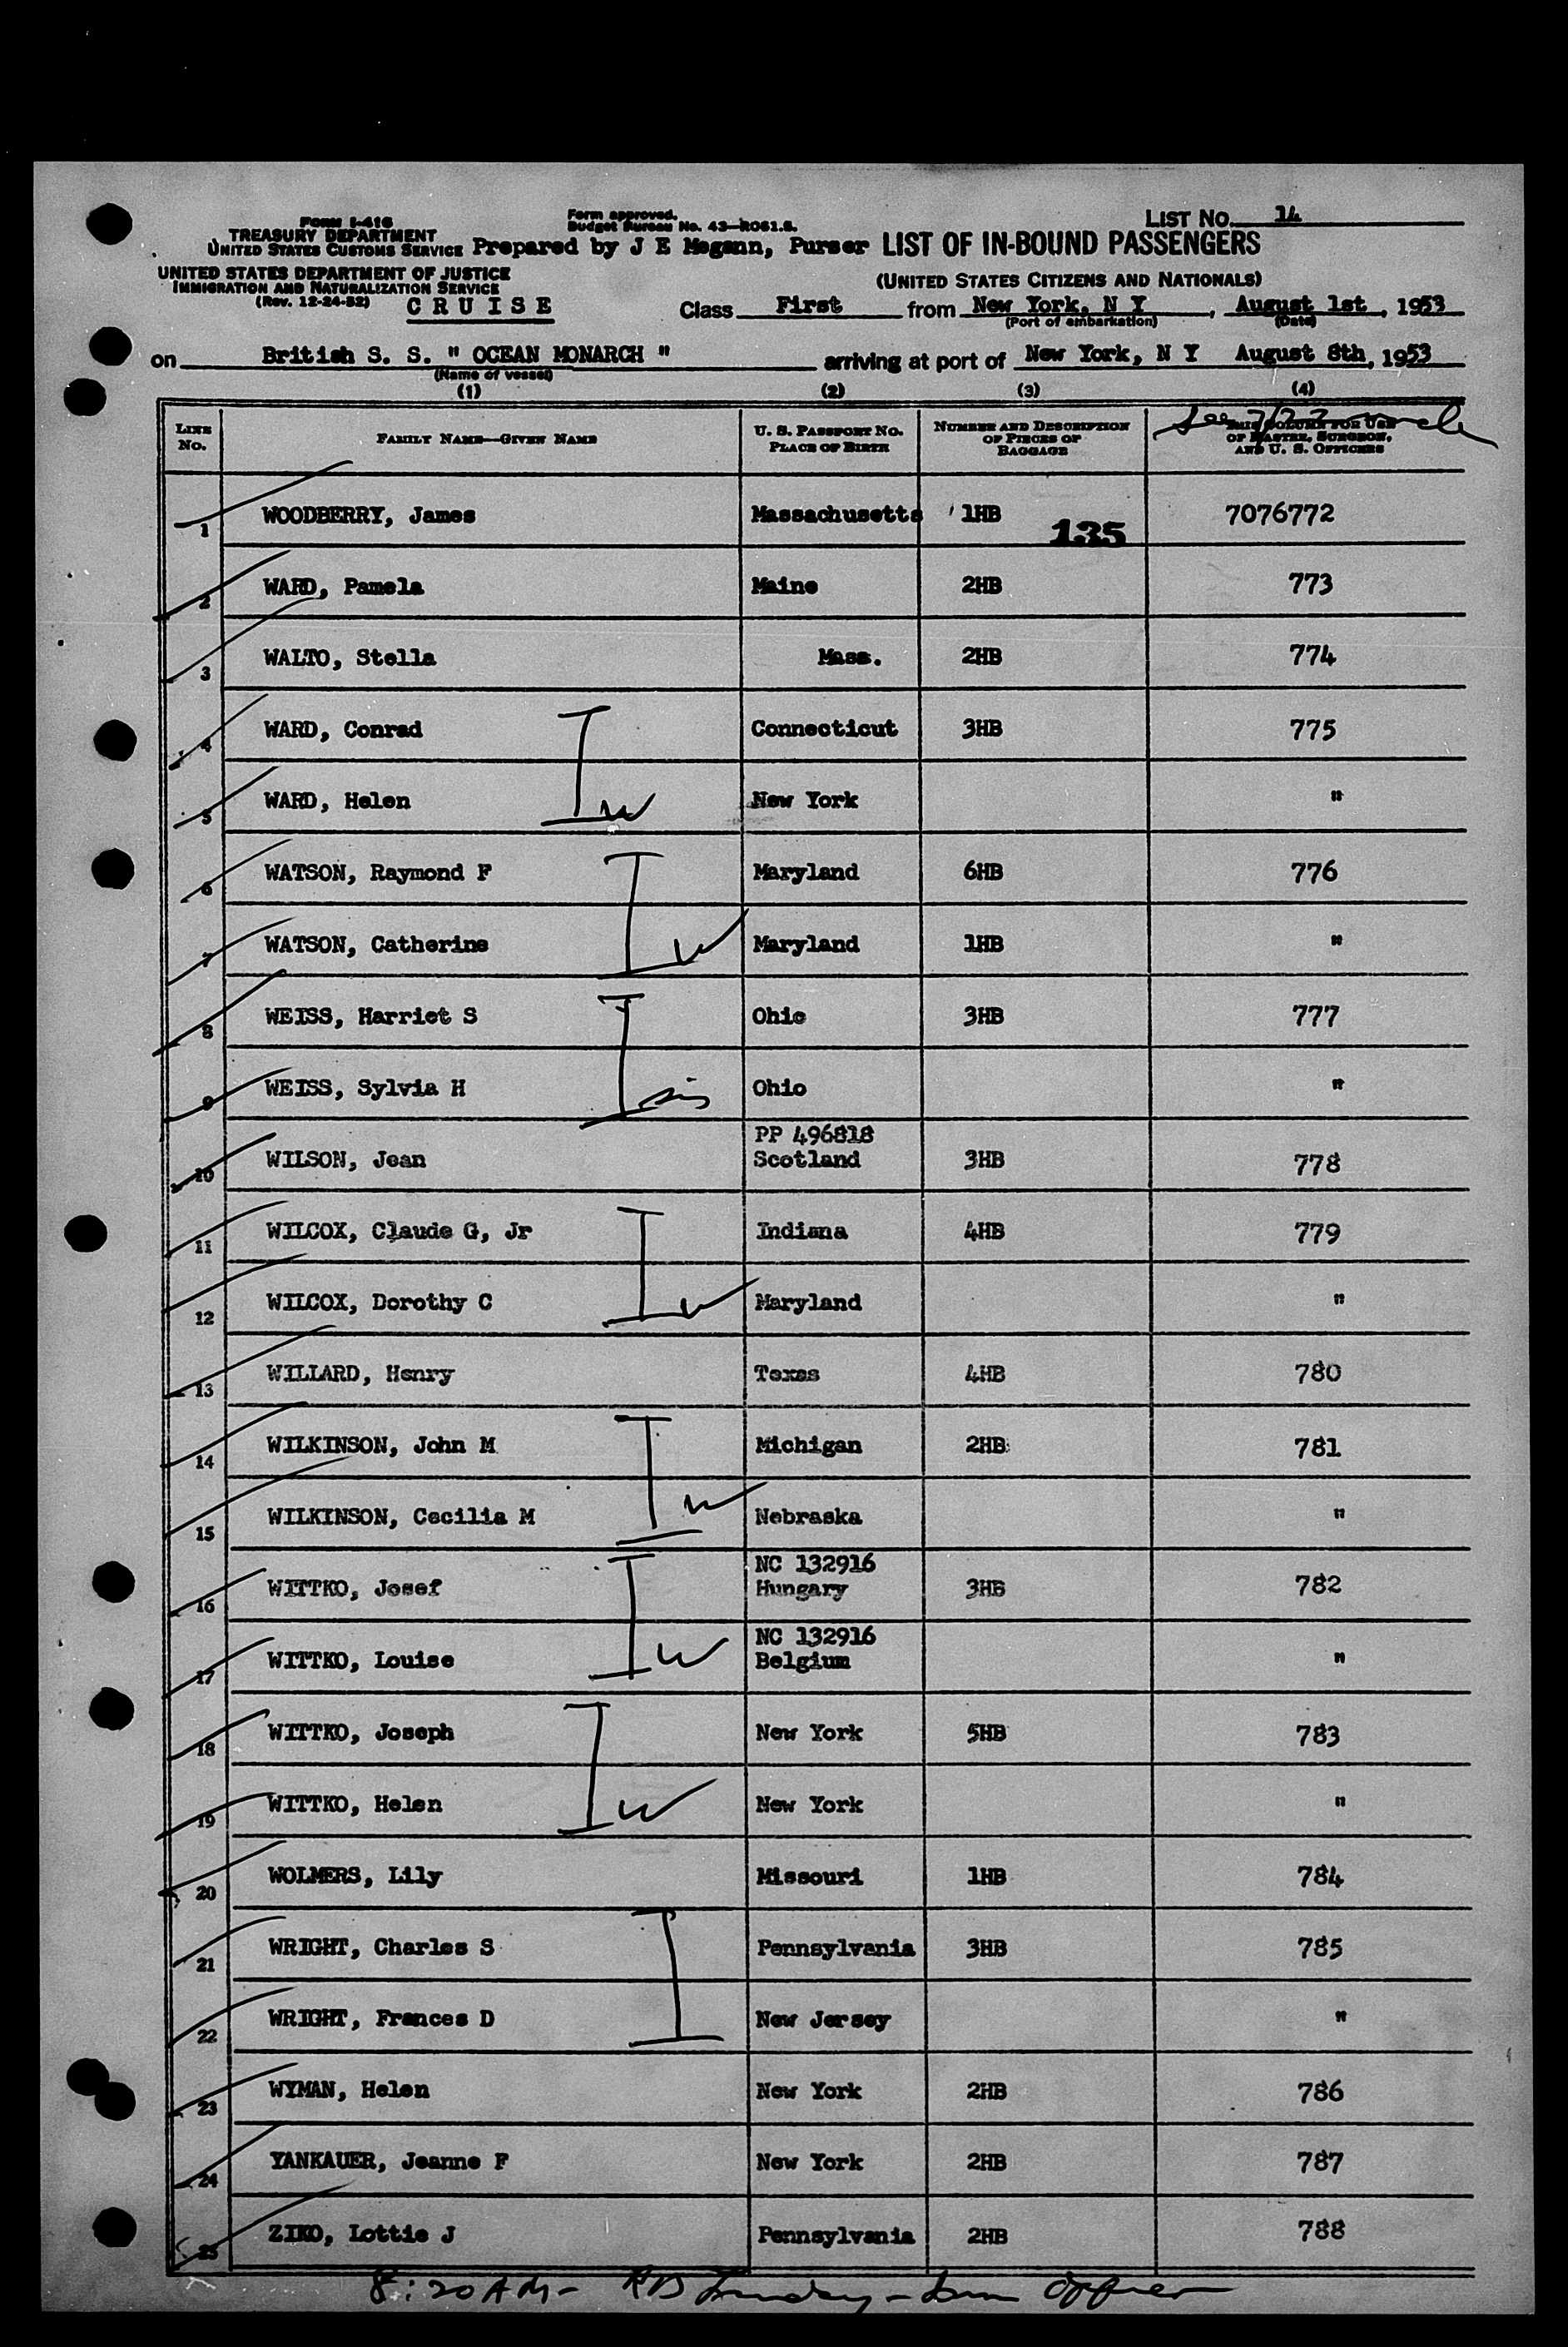 Form I-416
TREASURY DEPARTMENT
UNITED STATES CUSTOMS SERVICE
UNITED STATES DEPARTMENT OF JUSTICE
IMMIGRATION AND NATURALIZATION SERVICE
(Rev. 12-24-52)
C R U I S E
Form approved.
Budget Bureau No. 43—R061.5.
Prepared by J E Megann, Purser
LIST NO. 14
LIST OF IN-BOUND PASSENGERS
(UNITED STATES CITIZENS AND NATIONALS)
Class First from New York, N Y, August 1st, 1953
(Port of embarkation) (Date)
on British S. S. " OCEAN MONARCH " arriving at port of New York, N Y August 8th, 1953
(Name of vessel)
(1) (2) (3) (4)
LINE NO. FAMILY NAME—GIVEN NAME U. S. PASSPORT NO. PLACE OF BIRTH NUMBER AND DESCRIPTION OF PIECES OF BAGGAGE THIS COLUMN FOR USE OF MASTER, SURGEON, AND U. S. OFFICERS
See
1 WOODBERRY, James Massachusetts 1HB 135 7076772
2 WARD, Pamela Maine 2HB 773
3 WALTO, Stella Mass. 2HB 774
4 WARD, Conrad Connecticut 3HB 775
5 WARD, Helen W New York "
6 WATSON, Raymond F Maryland 6HB 776
7 WATSON, Catherine W Maryland 1HB "
8 WEISS, Harriet S Ohio 3HB 777
9 WEISS, Sylvia H sis Ohio "
PP 496818
10 WILSON, Jean Scotland 3HB 778
11 WILCOX, Claude G, Jr Indiana 4HB 779
12 WILCOX, Dorothy C W Maryland "
13 WILLARD, Henry Texas 4HB 780
14 WILKINSON, John M Michigan 2HB 781
15 WILKINSON, Cecilia M W Nebraska "
NC 132916
16 WITTKO, Josef Hungary 3HB 782
NC 132916
17 WITTKO, Louise W Belgium "
18 WITTKO, Joseph New York 5HB 783
19 WITTKO, Helen W New York "
20 WOLMERS, Lily Missouri 1HB 784
21 WRIGHT, Charles S Pennsylvania 3HB 785
22 WRIGHT, Frances D New Jersey "
23 WYMAN, Helen New York 2HB 786
24 YANKAUER, Jeanne F New York 2HB 787
25 ZIKO, Lottie J Pennsylvania 2HB 788
8:20 AM - Officer